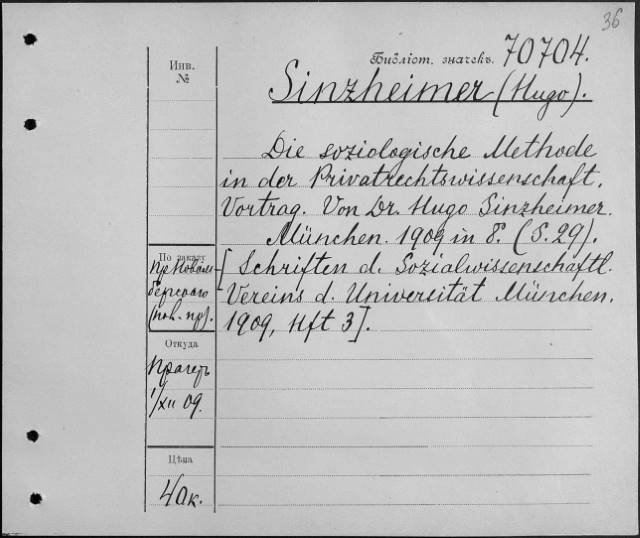 36
Библіот. значекъ. 70704.
Инв.
№
Sinzheimer (Hugo).
Die soziologische Methode
in der Privatrechtswissenschaft.
Vortrag. Von Dr. Hugo Sinzheimer.
München. 1909 in 8. (S. 29).
[Schriften d. Sozialwissenschaftl.
Vereins d. Universität München.
1909, Hft 3].
По заказу
пр.
Откуда
1/XII 09.
Цѣна
40к.